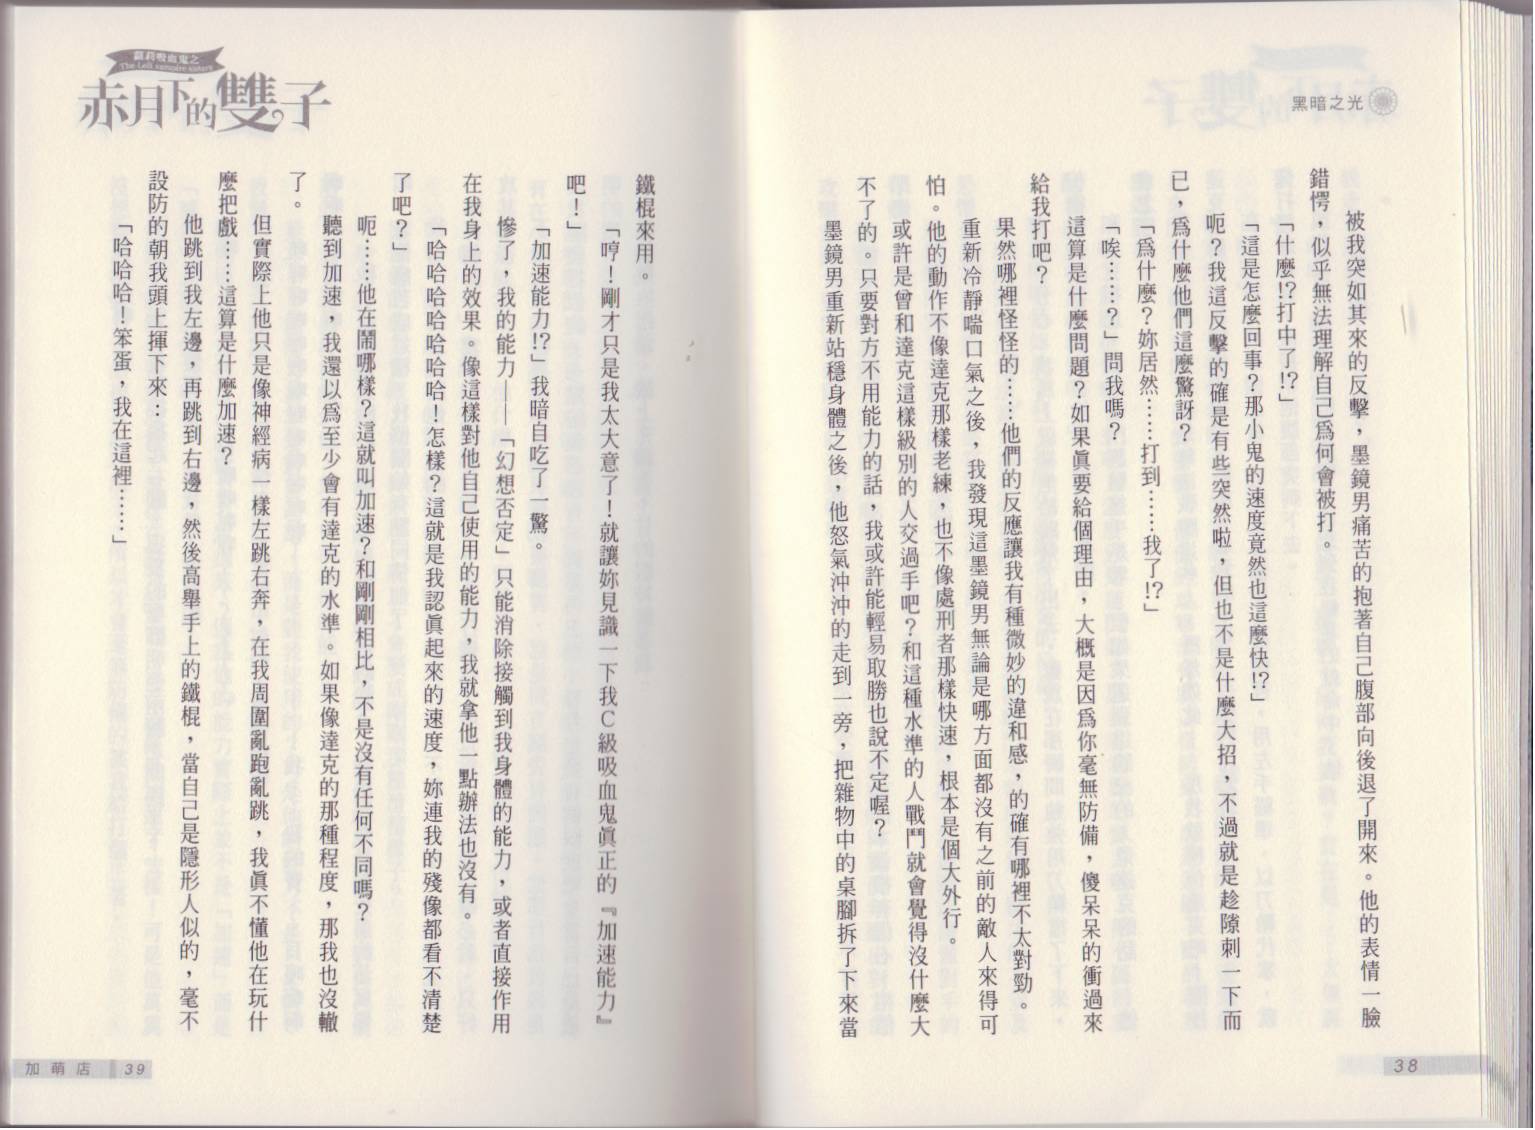 黑暗之光
被我突如其來的反擊，墨鏡男痛苦的抱著自己腹部向後退了開來。他的表情一臉
錯愕，似乎無法理解自己為何會被打。
「什麼!?打中了!?」
「這是怎麼回事？那小鬼的速度竟然也這麼快!?」
呃？我這反擊的確是有些突然啦，但也不是什麼大招，不過就是趁隙刺一下而
已，為什麼他們這麼驚訝？
「為什麼？妳居然……打到……我了!?」
「唉……？」問我嗎？
這算是什麼問題？如果真要給個理由，大概是因為你毫無防備，傻呆呆的衝過來
給我打吧？
果然哪裡怪怪的……他們的反應讓我有種微妙的違和感，的確有哪裡不太對勁。
重新冷靜喘口氣之後，我發現這墨鏡男無論是哪方面都沒有之前的敵人來得可
怕。他的動作不像達克那樣老練，也不像處刑者那樣快速，根本是個大外行。
或許是曾和達克這樣級別的人交過手吧？和這種水準的人戰鬥就會覺得沒什麼大
不了的。只要對方不用能力的話，我或許能輕易取勝也說不定喔？
墨鏡男重新站穩身體之後，他怒氣沖沖的走到一旁，把雜物中的桌腳拆了下來當
38
蘿莉吸血鬼之
The Loli vampire sisters
赤月下的雙子
鐵棍來用。
「哼！剛才只是我太大意了！就讓妳見識一下我C級吸血鬼真正的『加速能力』
吧！」
「加速能力!?」我暗自吃了一驚。
慘了，我的能力——「幻想否定」只能消除接觸到我身體的能力，或者直接作用
在我身上的效果。像這樣對他自己使用的能力，我就拿他一點辦法也沒有。
「哈哈哈哈哈哈哈！怎樣？這就是我認真起來的速度，妳連我的殘像都看不清楚
了吧？」
呃……他在鬧哪樣？這就叫加速？和剛剛相比，不是沒有任何不同嗎？
聽到加速，我還以為至少會有達克的水準。如果像達克的那種程度，那我也沒轍
了。
但實際上他只是像神經病一樣左跳右奔，在我周圍亂跑亂跳，我真不懂他在玩什
麼把戲……這算是什麼加速？
他跳到我左邊，再跳到右邊，然後高舉手上的鐵棍，當自己是隱形人似的，毫不
設防的朝我頭上揮下來：
「哈哈哈！笨蛋，我在這裡……」
加萌店 39